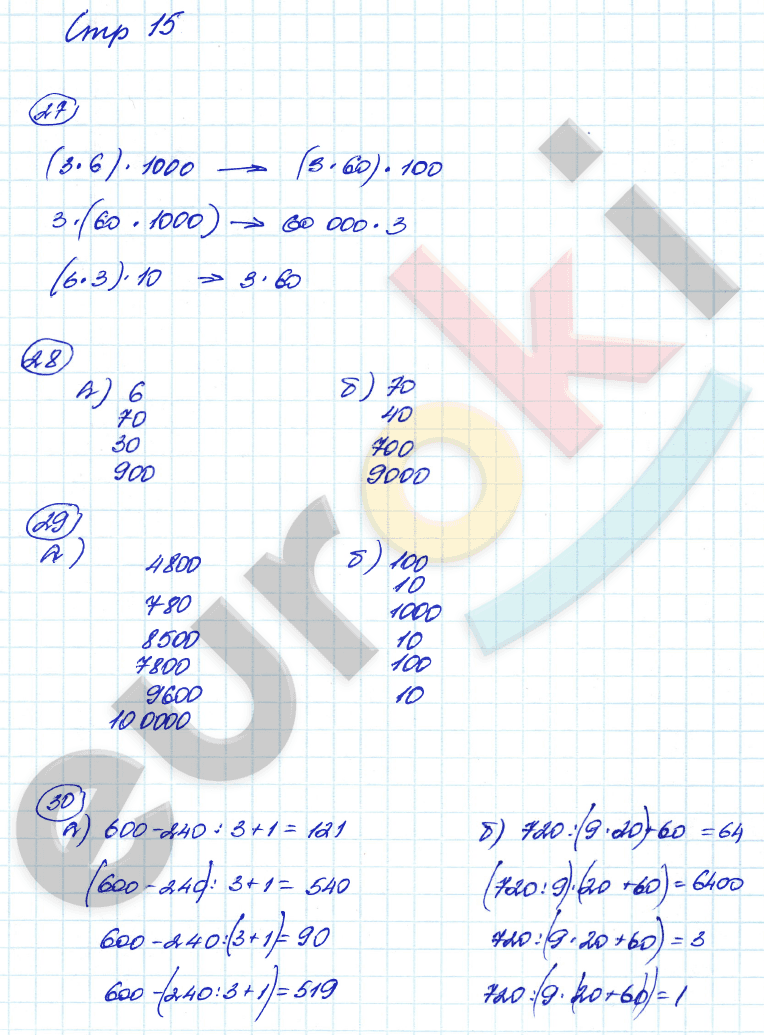 Стр 15
27
(3·6)·1000 → (3·60)·100
3·(60·1000) → 60 000·3
(6·3)·10 → 3·60
28
а) 6
70
30
900
б) 70
40
700
9000
29
а)
4800
780
8500
7800
9600
10 0000
б) 100
10
1000
10
100
10
30
а) 600-240:3+1=121
(600-240):3+1=540
600-240:(3+1)=90
600-(240:3+1)=519
б) 720:(9·20)+60=64
(720:9)·(20+60)=6400
720:(9·20+60)=3
720:(9·(20+60))=1
euroki